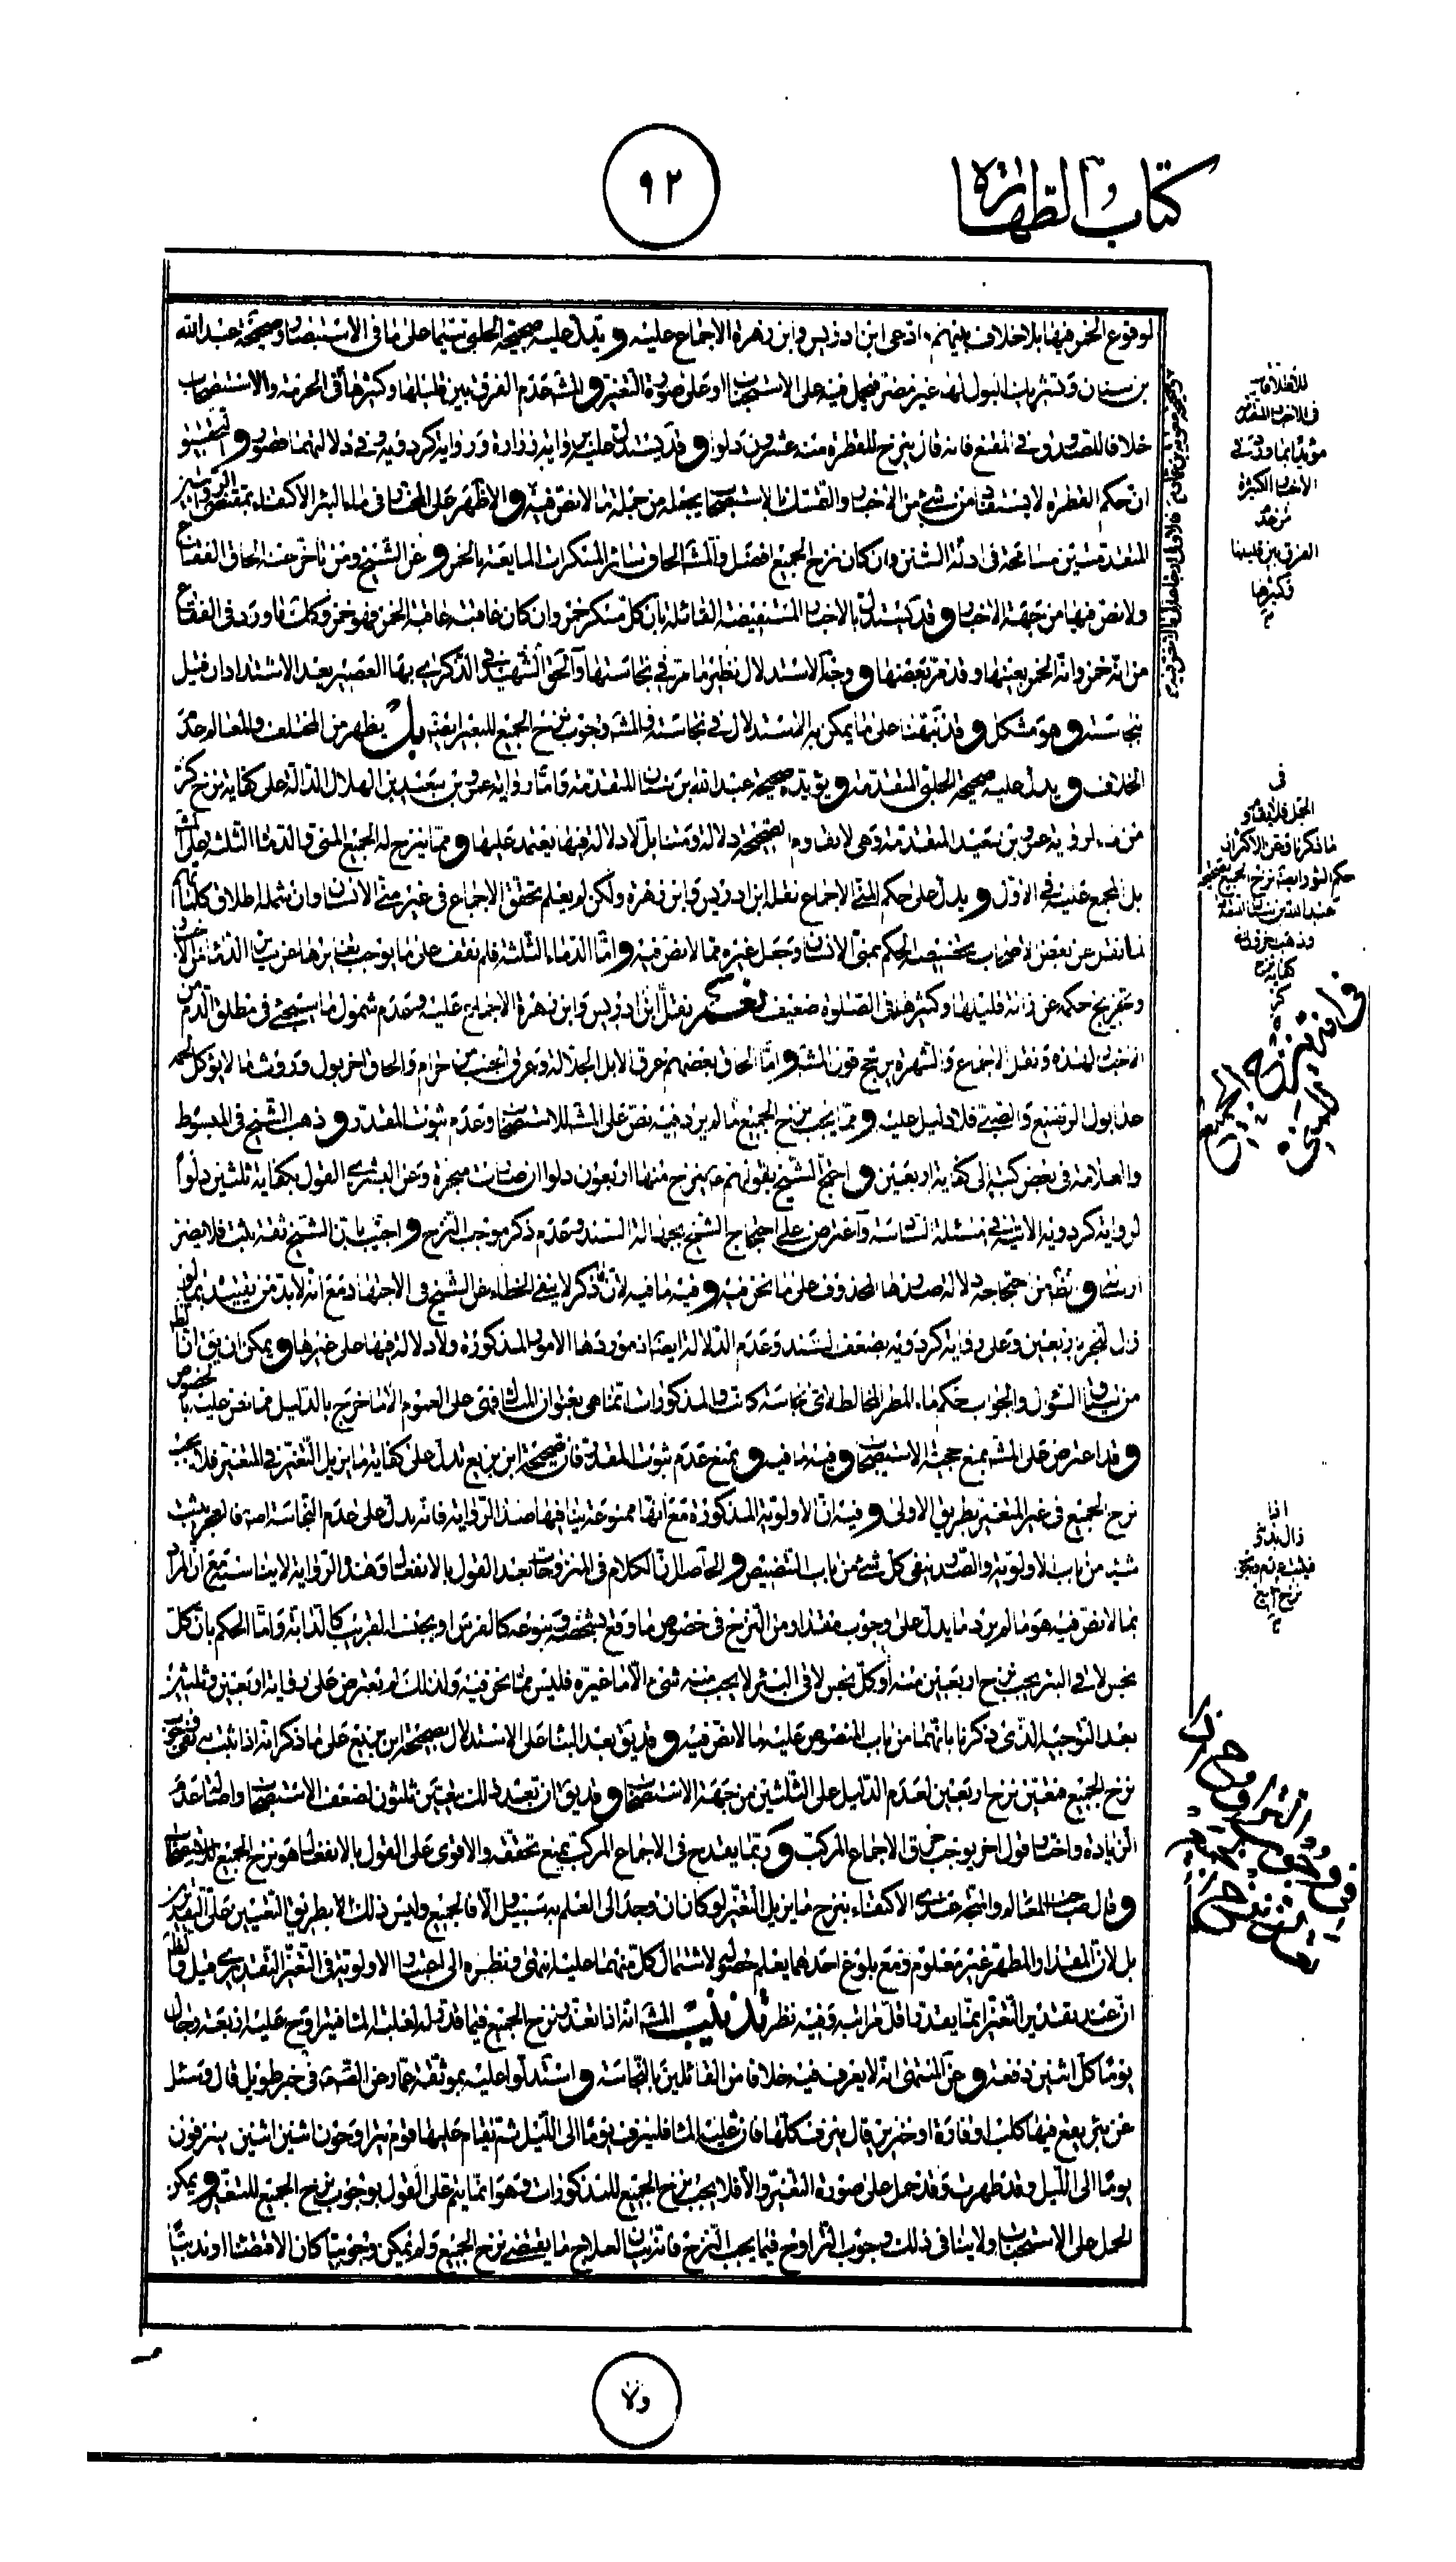 كتاب الطهارة
٩٢
لوقوع الخمر فيها بلا خلاف بينهم وادعى ابن ادريس وابن زهرة الاجماع عليه و يدل عليه صحيحة الحلبي سيما على ما في الاستبصار وصحيحة عبد الله
بن سنان وتشريك البول لها غير مضر فيحمل فيه على الاستحباب او على صورة التغير و المشهور عدم الفرق بين قليلها وكثيرها في الحرمة والاستصحاب
خلافا للصدوق في المقنع فانه قال ينزح للقطرة منه عشرون دلوا و قد يستدل عليه برواية زرارة ورواية كردويه وفي دلالتهما قصور و التحقيق
ان حكم القطرة لا يستفاد من شيء من الاخبار والتمسك بالاستصحاب يجعله من جملة ما لا نص فيه و الاظهر على المختار في ماء البئر الاكتفاء بمقتضى الروايتين
المتقدمتين مسامحة في ادلة السنن وان كان نزح الجميع افضل والمشهور الحاق سائر المسكرات المايعة بالخمر و عن الشيخ ومن تاخر عنه الحاق الفقاع
ولا نص فيها من جهة الاخبار و قد يستدل بالاخبار المستفيضة القائلة بان كل مسكر خمر وان كان عاقبته عاقبة الخمر فهو خمر وكلما ورد في الفقاع
من انه خمر وانه الخمر بعينها وقد مر بعضها و وجه الاستدلال نظير ما مر في نجاستها والحق الشهيد في الذكرى بها العصير بعد الاشتداد ان قيل
بنجاسته و هو مشكل و قد نبهنا على ما يمكن به الاستدلال في نجاسته والمشهور وجوب نزح الجميع للبعير ايضا بل يظهر من المختلف والمعالم عدم
الخلاف و يدل عليه صحيحة الحلبي المتقدمة و يؤيده صحيحة عبد الله بن سنان المتقدمة واما رواية عمرو بن سعيد بن الهلال الدالة على كفاية نزح كر
من ماء لرواية عمرو بن سعيد المتقدمة وهي لا تقاوم الصحيحة دلالة وسندا بل لا دلالة فيها يعتمد عليها و مما ينزح له الجميع المني والدماء الثلثة على المشهور
بل المجمع عليه في الاول و يدل على حكم المني الاجماع نقله ابن ادريس وابن زهرة ولكن لم يعلم تحقق الاجماع في غير مني الانسان وان شمله اطلاق كلماتهم
لما نقل عن بعض الاصحاب تخصيص الحكم بمني الانسان وجعل غيره مما لا نص فيه و اما الدماء الثلثة فلم نقف على ما يوجب تمايزها عن باقي الدماء من الاخبار
وتخريج حكمه عن زيادة قليلها وكثيرها في الصلوة ضعيف نعم نقل ابن ادريس وابن زهرة الاجماع عليه وعدم شمول ما سيجئ في مطلق الدم من
الاخبار لهذه ونقل الاجماع والشهرة يرجح قول المشهور و اما الحاق بعضهم عرق الابل الجلالة وعرق الجنب من حرام والحاق اخر بول وروث ما لا يؤكل لحمه
عدا بول الرضيع والصبي فلا دليل عليه و مما يجب نزح الجميع ما لم يرد فيه نص على المشهور للاستصحاب وعدم ثبوت المقدر و ذهب الشيخ في المبسوط
والعلامة في بعض كتبه الى كفاية اربعين و احتج الشيخ بقولهم ع ينزح منها اربعون دلوا ان صارت مبخرة وعن البشرى القول بكفاية ثلثين دلوا
لرواية كردويه الاتية في مسئلة السادسة واعترض على احتجاج الشيخ بجهالة السند وعدم ذكر موجب النزح و اجيب بان الشيخ ثقة ثبت فلا يضر
ارساله و يظهر من احتجاجه دلالة صدرها المحذوف على ما نحن فيه و فيه ما فيه لان ما ذكر لا ينفي الخطاء عن الشيخ في الاجتهاد مع انه لا بد من تقييده بما لو
زال التغير باربعين وعلى رواية كردويه بضعف السند وعدم الدلالة ايضا اذ موردها الامور المذكورة ولا دلالة فيها على غيرها و يمكن ان يقال ان الظاهر
من سياق السؤال والجواب حكم ماء المطر المخالط لاي نجاسة كانت والمذكورات انما هي بعنوان المثال فتبقى على العموم الا ما خرج بالدليل مما نص عليه بالخصوص
و قد اعترض على المشهور بمنع حجية الاستصحاب و فيه ما فيه و بمنع عدم ثبوت المقدر فان صحيحة ابن بزيع تدل على كفاية ما يزيل التغير في المتغير فلا يجب
نزح الجميع في غير المتغير بطريق الاولى و فيه ان الاولوية المذكورة مع انها ممنوعة ينافيها صدر الرواية فانه يدل على عدم النجاسة اصلا فالصدر يثبت
شيئا من باب الاولوية والصدر ينفي كل شئ من باب التنصيص و الحاصل ان الكلام في المنزوحات بعد القول بالانفعال وهذه الرواية لا يناسبه مع ان المراد
بما لا نص فيه هو ما لم يرد ما يدل على وجوب مقدار من النزح في خصوص ما وقع بشخصه وبنوعه كالفرس او بجنسه القريب كالدابة واما الحكم بان كل
نجس لاقى البئر يجب نزح اربعين منه او كل نجس لاقى البئر لا يجب منه شئ الا ما غيره فليس مما نحن فيه ولذلك لم يعترض على رواية اربعين وثلثين
بعد التوجيه الذي ذكرنا بانهما من باب المنصوص عليه لا ما لا نص فيه و قد يقال بعد البناء على الاستدلال بصحيحة ابن بزيع على ما ذكر انه اذا ثبت نفي وجوب
نزح الجميع فتعين نزح اربعين لعدم الدليل على الثلثين من جهة الاستصحاب و قد يقال ان بعد ذلك يتعين ثلثون لضعف الاستصحاب واصالة عدم
الزيادة واختيار قول اخر يوجب خرق الاجماع المركب و ربما يقدح في الاجماع المركب بمنع تحققه والاقوى على القول بالانفعال هو نزح الجميع للاستصحاب
و قال صاحب المعالم والمتجه عندي الاكتفاء بنزح ما يزيل التغير لو كان ان وجد الى العلم به سبيل والا فالجميع وليس ذلك الا بطريق التعيين على التقديرين
بل لان المقدار المطهر غير معلوم ومع بلوغ احدهما يعلم حصوله لاشتمال كل منهما عليه انتهى ونظره الى اعتبار الاولوية في التغير التقديري قيل والظاهر
ان عند تقدير التغير انما يعتد باقل مراتبه وفيه نظر تذنيب المشهور انه اذا تعذر نزح الجميع فيما قدر له لغلبة الماء فيتراوح عليه اربعة رجال
يوما كل اثنين دفعة و عن المنتهى انه لا يعرف فيه خلافا من القائلين بالنجاسة و استدلوا عليه بموثقة عمار عن الص ع في خبر طويل قال وسئل
عن بئر يقع فيها كلب او فارة او خنزير قال ينزف كلها فان غلب عليه الماء فلينزف يوما الى الليل ثم يقام عليها قوم يتراوحون اثنين اثنين ينزفون
يوما الى الليل وقد طهرت وقد حمل على صورة التغير والا فلا يجب نزح الجميع للمذكورات وهو انما يتم على القول بوجوب نزح الجميع للمتغير و يمكن
الحمل على الاستحباب ولا ينافي ذلك وجوب التراوح فيما يجب النزح فانه بيان العلاج ما يقتضي نزح الجميع ولم يمكن وجوبيا كان الاقتضاء او ندبيا
للاطلاقات
في الاخبار المتقدمة
مؤيدا بما ورد في
الاخبار الكثيرة
من عدم
الفرق بين قليلها
وكثيرها
ولا